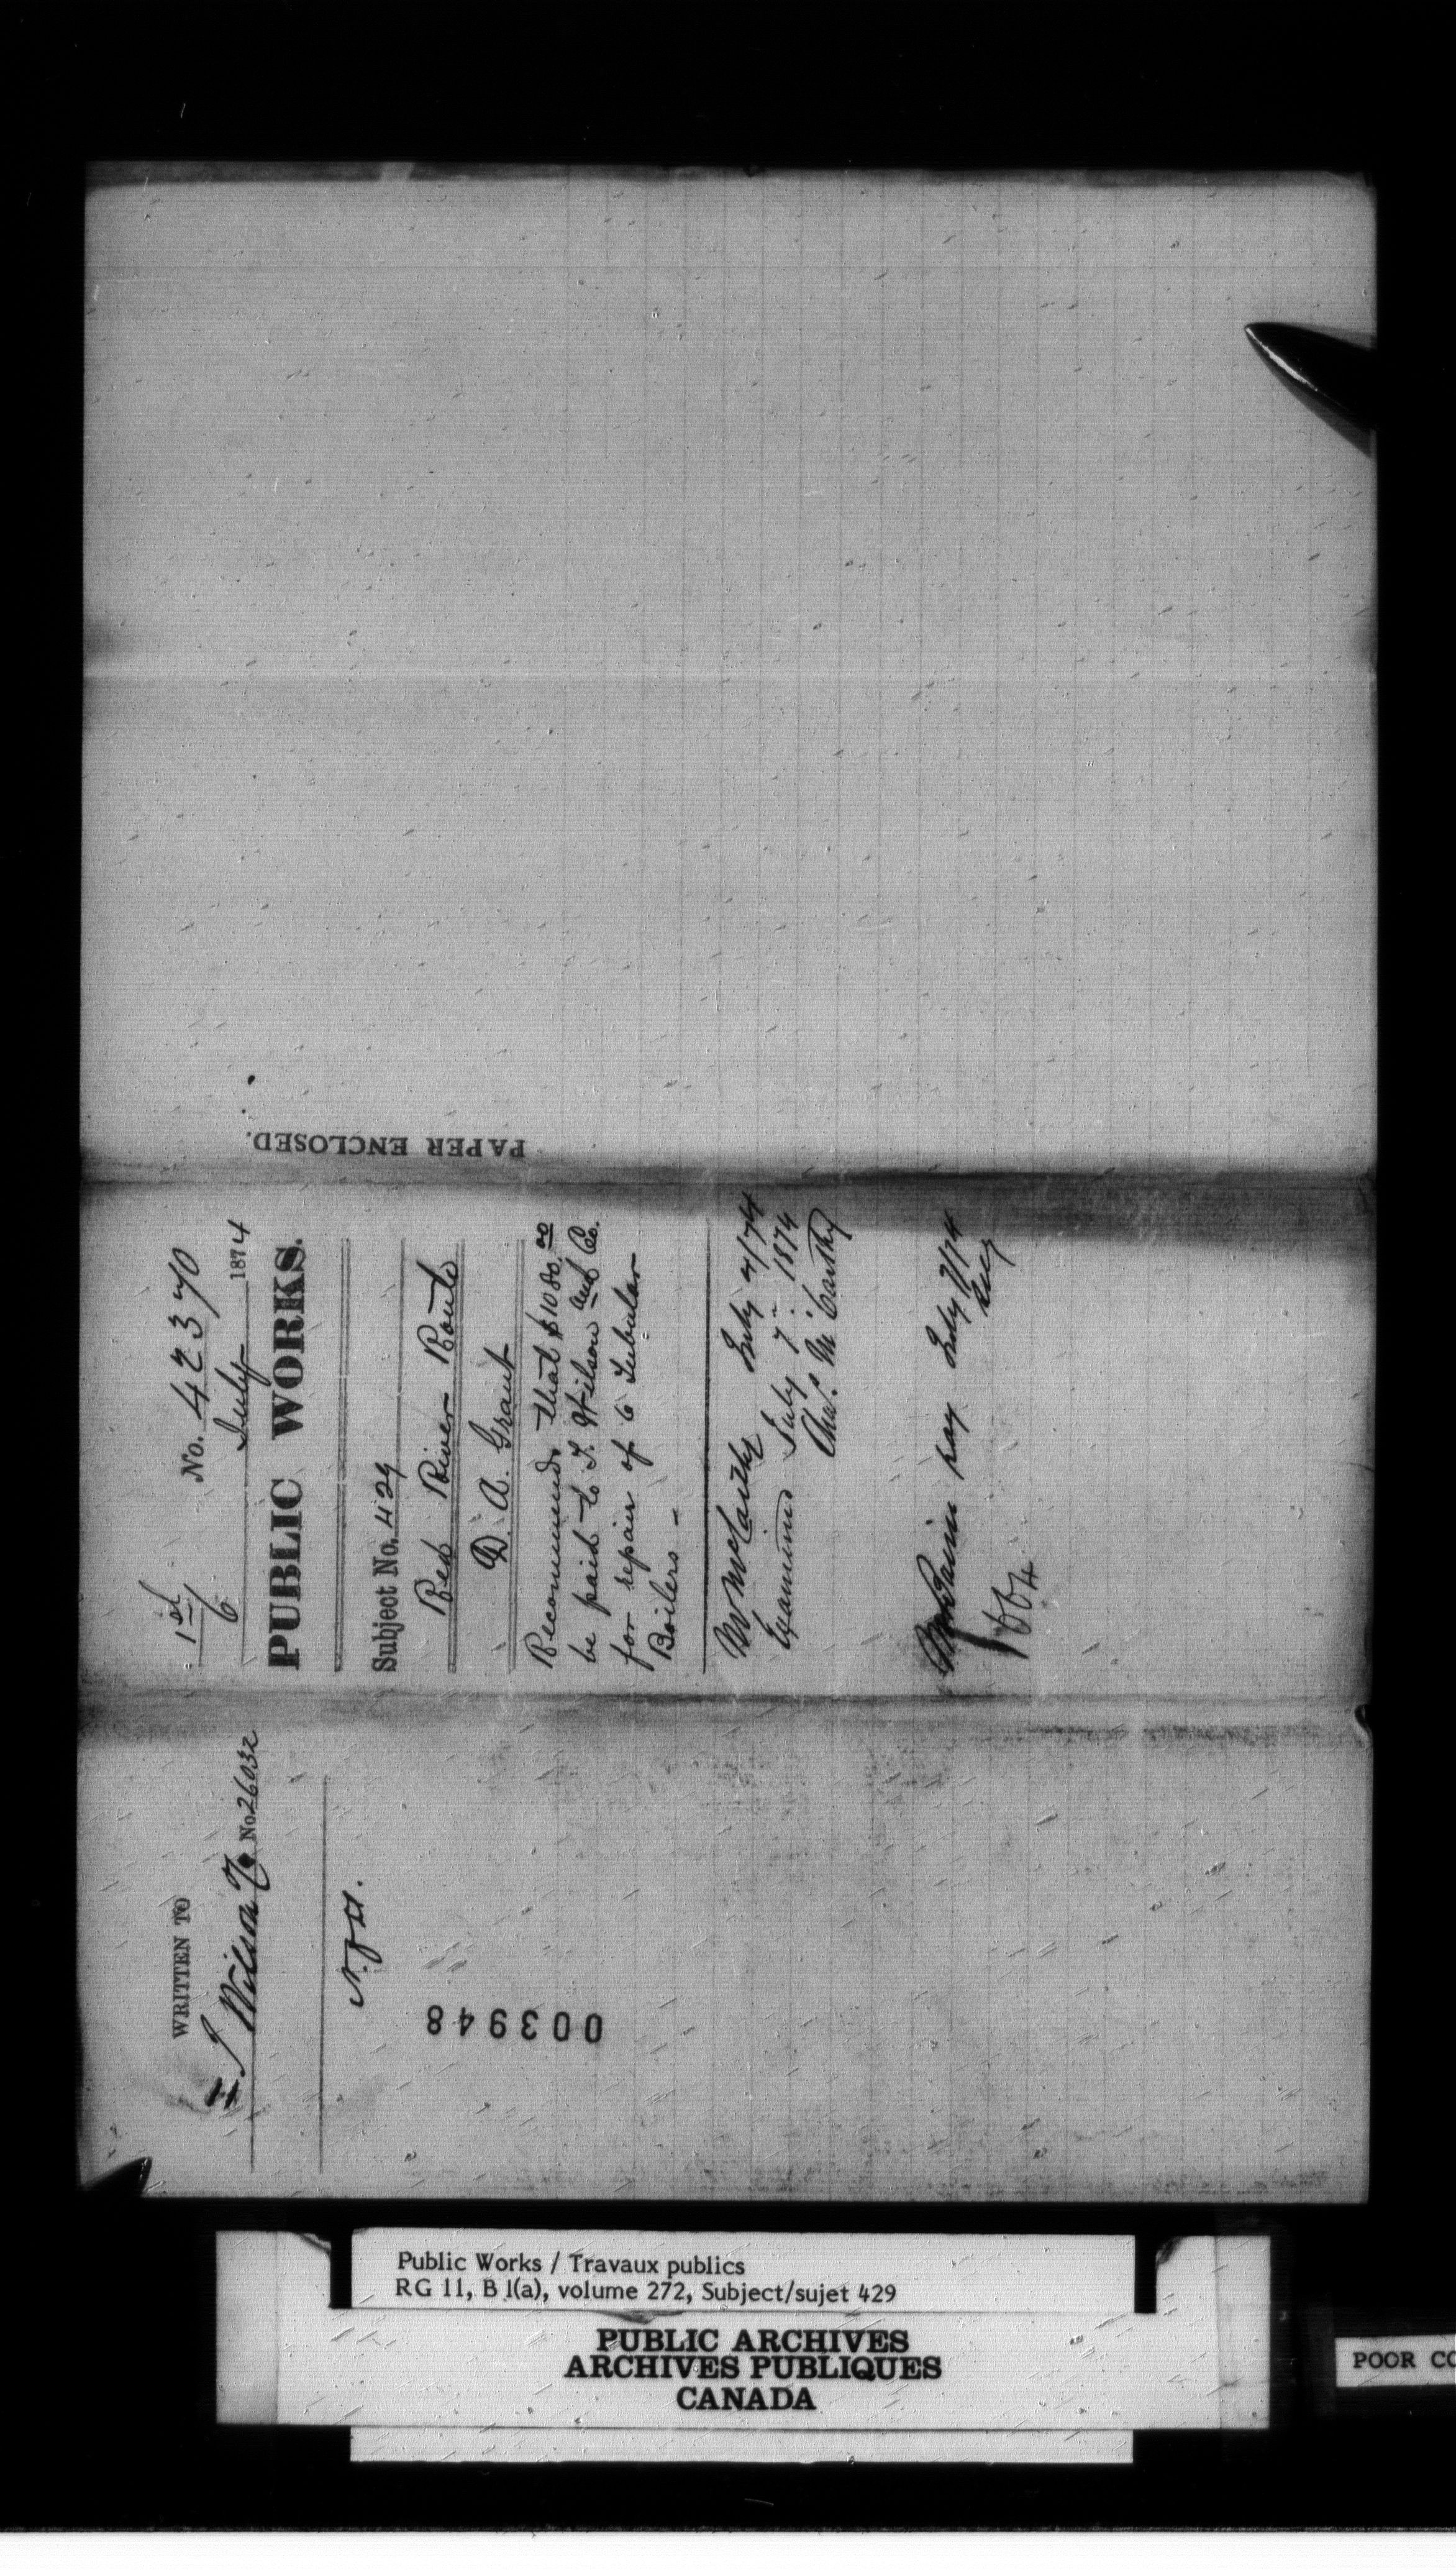 1st
6
No. 42370
July 1874
PUBLIC WORKS.
Subject No. 429
Red River Route
D. A. Grant
Recommends that $1080.00
be paid to T. Wilson and Co.
for repair of 6 Tubular
Boilers -
Mr McCarthy July 7/74
Examined July 7: 1874
Chas. McCarthy
Mr Bain pay July 7/74
PAPER ENCLOSED.
WRITTEN TO
T Wilson No 26032
003948
Public Works / Travaux publics
RG 11, B 1(a), volume 272, Subject/sujet 429
PUBLIC ARCHIVES
ARCHIVES PUBLIQUES
CANADA
POOR CO